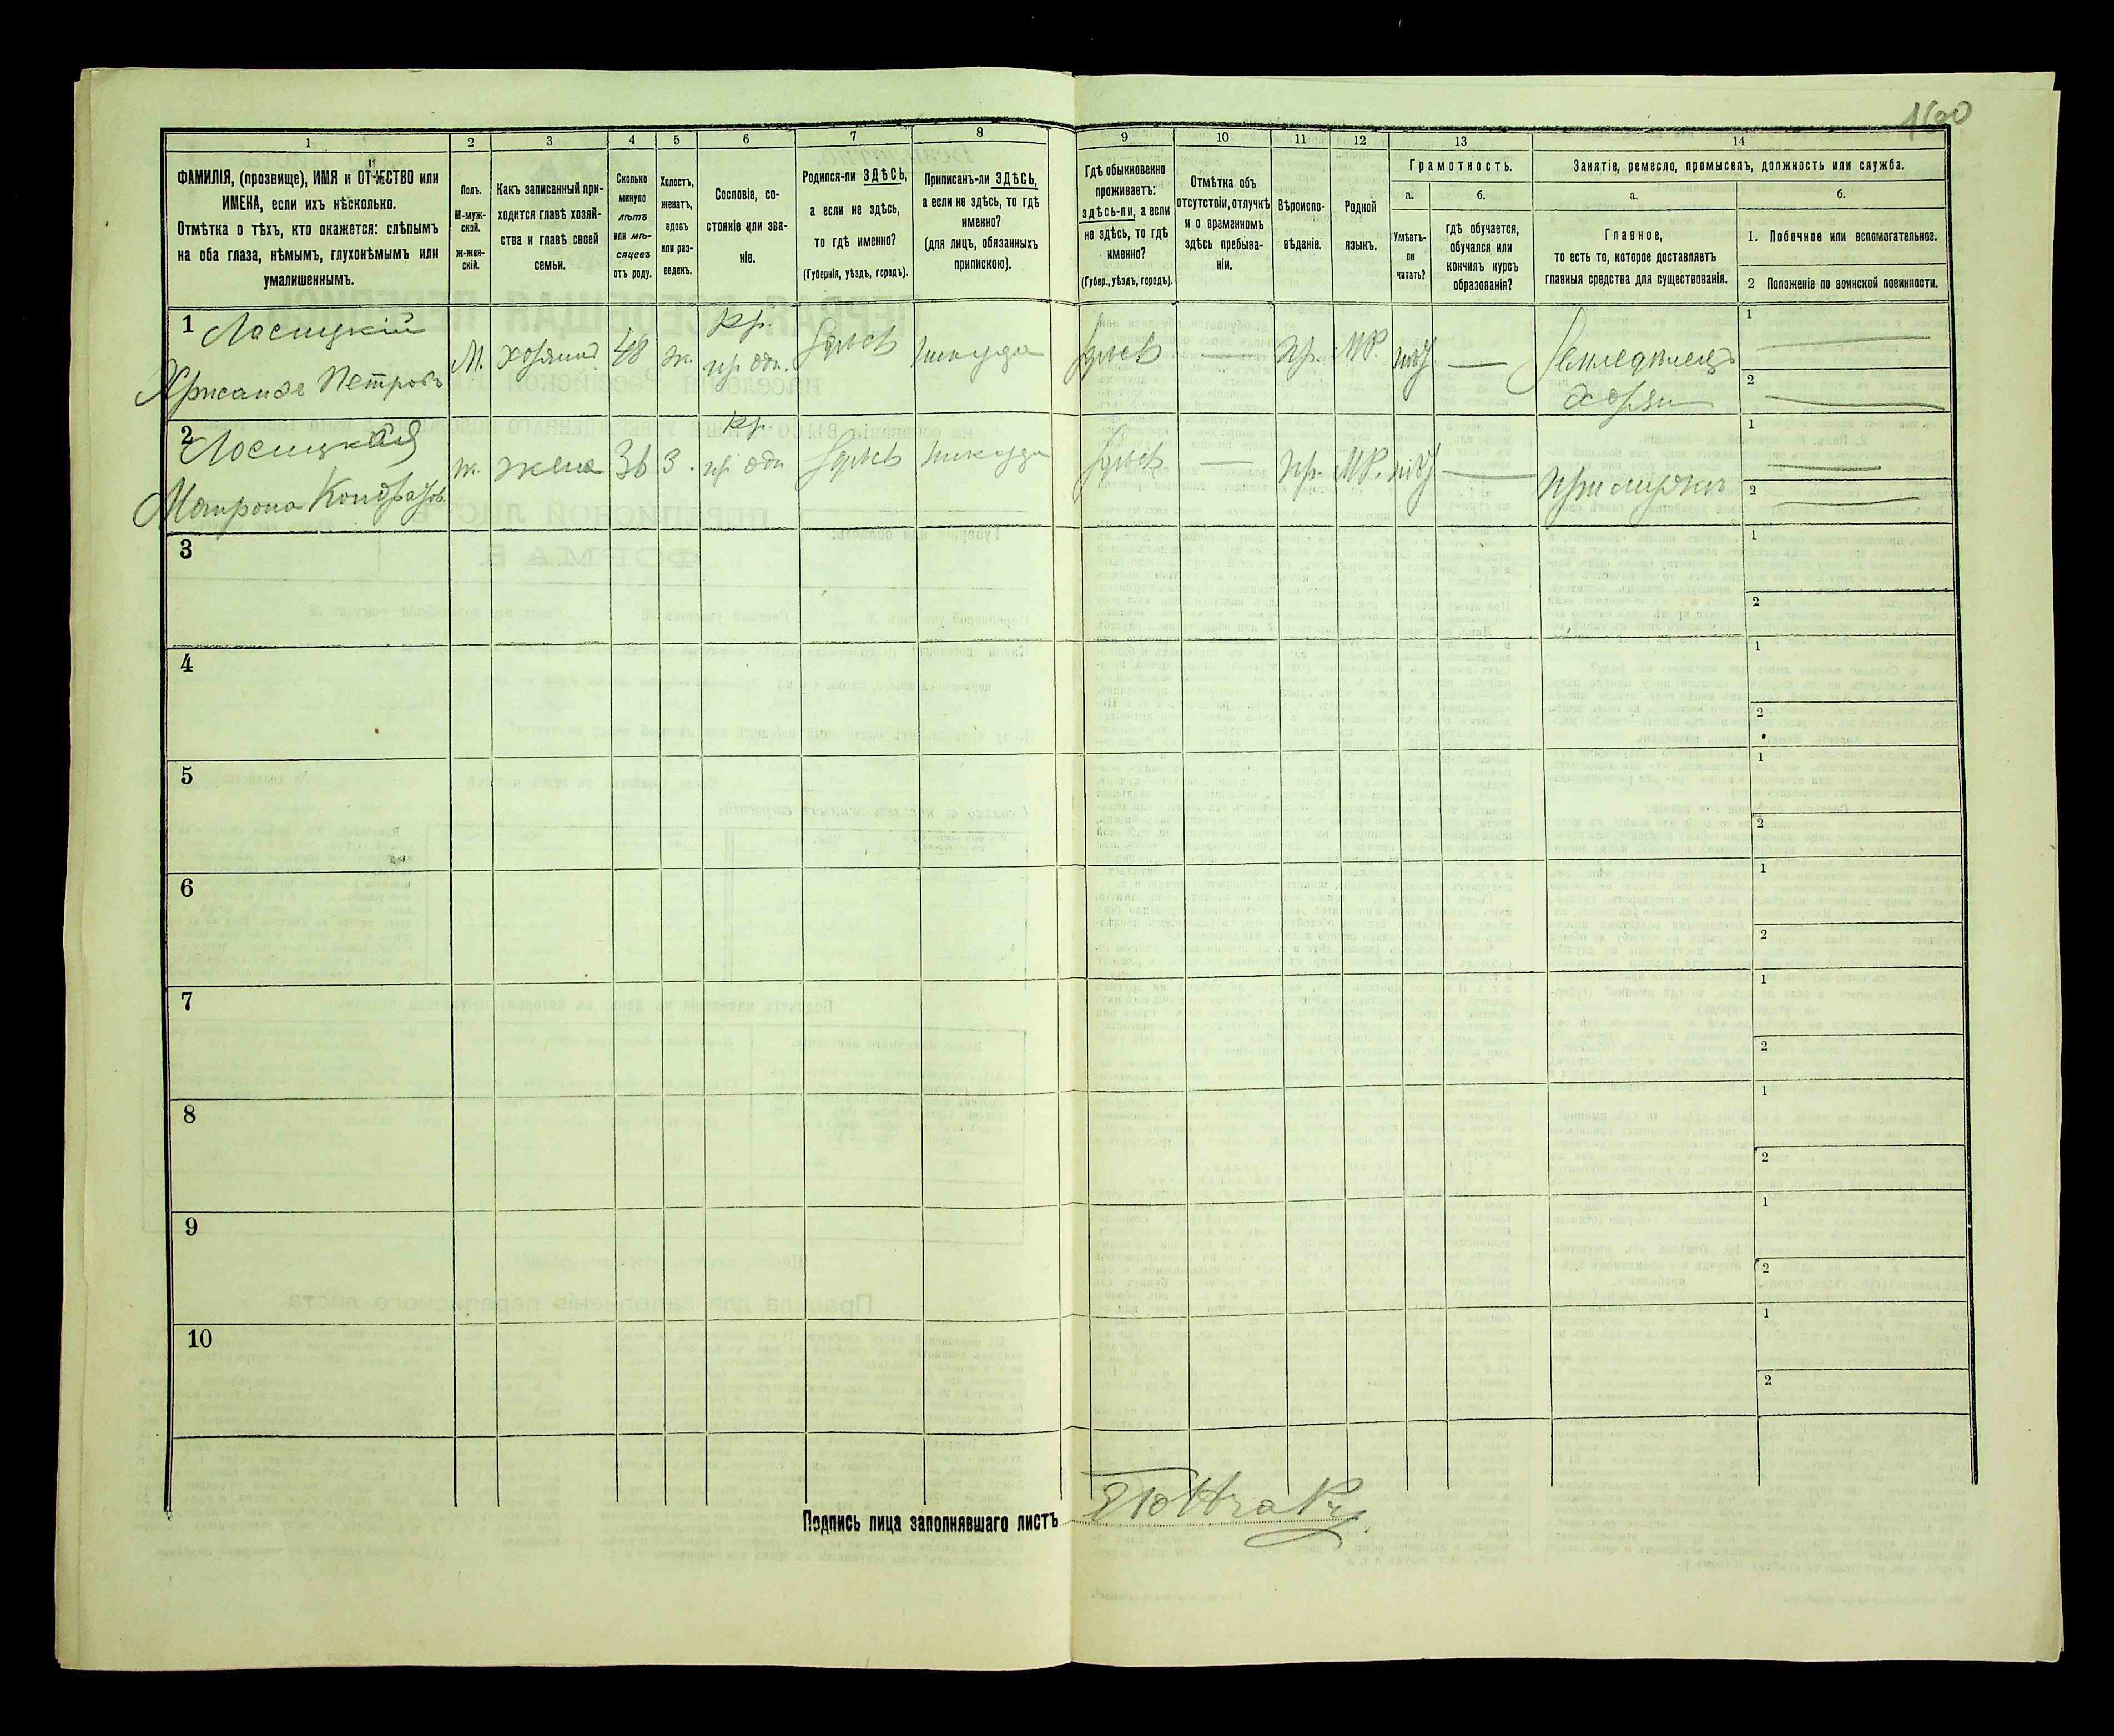 1600
1
2
3
4
5
6
7
8
9
10
11
12
13
14
ФАМИЛІЯ, (прозвище), ИМЯ и ОТЧЕСТВО или
ИМЕНА, если ихъ нѣсколько.
Отмѣтка о тѣхъ, кто окажется: слѣпымъ
на оба глаза, нѣмымъ, глухонѣмымъ или
умалишеннымъ.
Полъ.
М-муж-
ской.
ж-жен-
скій.
Какъ записанный при-
ходится главѣ хозяй-
ства и главѣ своей
семьи.
Сколько
минуло
лѣтъ
или мѣ-
сяцевъ
отъ роду.
Холостъ,
женатъ,
вдовъ
или раз-
веденъ.
Сословіе, со-
стояніе или зва-
ніе.
Родился-ли ЗДѢСЬ,
а если не здѣсь,
то гдѣ именно?
(Губернія, уѣздъ, городъ).
Приписанъ-ли ЗДѢСЬ,
а если не здѣсь, то гдѣ
именно?
(для лицъ, обязанныхъ
припискою).
Гдѣ обыкновенно
проживаетъ:
здѣсь-ли, а если
не здѣсь, то гдѣ
именно?
(Губер., уѣздъ, городъ).
Отмѣтка объ
отсутствіи, отлучкѣ
и о временномъ
здѣсь пребыва-
ніи.
Вѣроиспо-
вѣданіе.
Родной
языкъ.
Грамотность.
а.
Умѣетъ-
ли
читать?
б.
гдѣ обучается,
обучался или
кончилъ курсъ
образованія?
Занятіе, ремесло, промыселъ, должность или служба.
а.
Главное,
то есть то, которое доставляетъ
главныя средства для существованія.
б.
1. Побочное или вспомогательное.
2 Положеніе по воинской повинности.
1 Лосицкій
Хрисанфъ Петровъ
М.
хозяинъ
48
ж.
кр.
Здѣсь
Здѣсь
пр.
МР.
Земледѣлецъ
хозяин
1
2
2 Лосицкая
Матрона Кондратов.
ж.
жена
36
з.
кр.
Здѣсь
Здѣсь
пр.
МР.
при мужѣ
1
2
3
1
2
4
1
2
5
1
2
6
1
2
7
1
2
8
1
2
9
1
2
10
1
2
Подпись лица заполнявшаго листъ